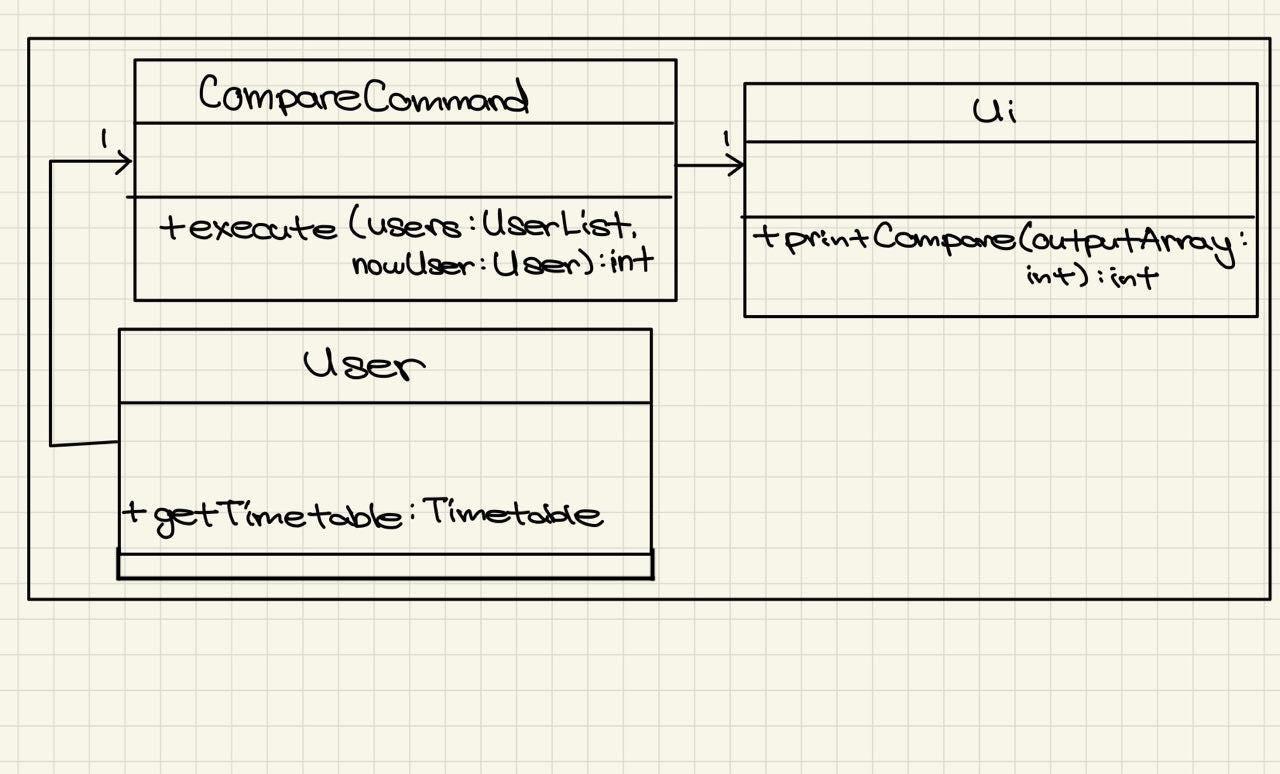 CompareCommand
1
+execute (users:UserList,
nowUser:User):int
1
Ui
+printCompare(outputArray:
int):int
User
+getTimetable:Timetable